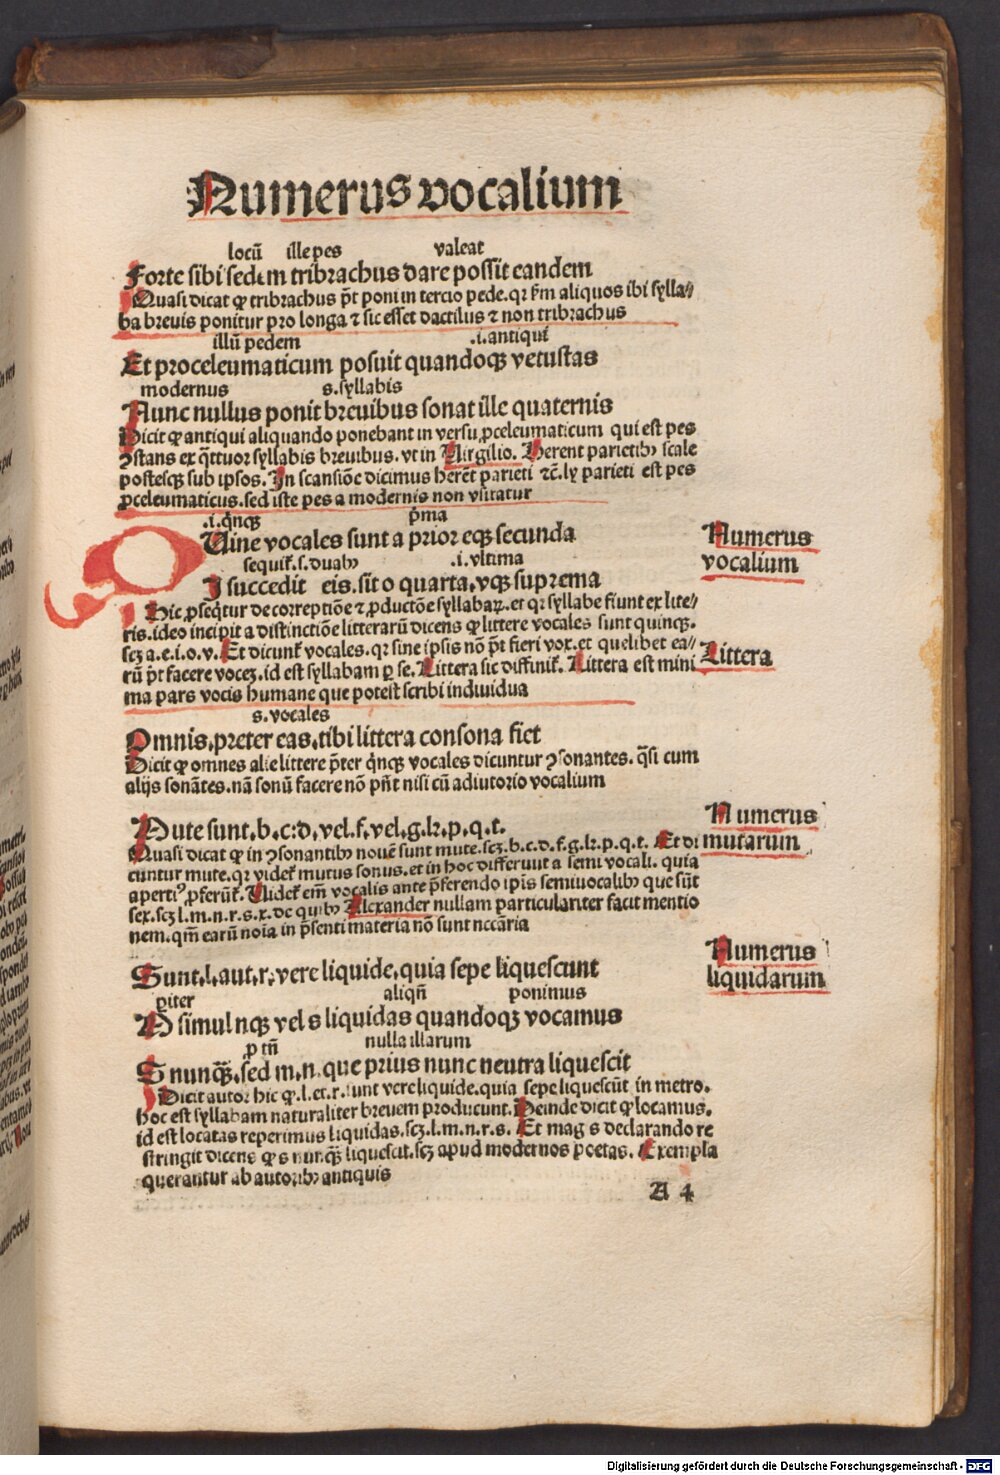 Numerus vocalium
locũ ille pes valeat
Forte sibi sedem tribrachus dare possit eandem
Quasi dicat ꝙ tribrachus p̃t poni in tercio pede. qꝛ s̃m aliquos ibi sylla⸗
ba breuis ponitur pro longa ⁊ sic esset dactilus ⁊ non tribrachus
illũ pedem .i. antiqui
Et proceleumaticum posuit quandoqꝫ vetustas
modernus s. syllabis
Nunc nullus ponit breuibus sonat ille quaternis
Dicit ꝙ antiqui aliquando ponebant in versu ꝓceleumaticum qui est pes
ꝯstans ex q̃ttuor syllabis breuibus. vt in Virgilio. Herent parietibꝫ scale
postesqꝫ sub ipsos. In scansiõe dicimus herẽt parieti ⁊c̃. ly parieti est pes
ꝓceleumaticus. sed iste pes a modernis non vsitatur
.i. q̃nqꝫ p̃ma
Uine vocales sunt a prior eqꝫ secunda
sequit̃. s. duabꝫ .i. vltima
I succedit eis. sit o quarta, vqꝫ suprema
Hic ꝓseq̃tur de correptiõe ⁊ ꝓductõe syllabaꝝ. et qꝛ syllabe fiunt ex lite⸗
ris. ideo incipit a distinctiõe litterarũ dicens ꝙ littere vocales sunt quinqꝫ.
scꝫ a. e. i. o. v. Et dicunt̃ vocales. qꝛ sine ipsis nõ p̃t fieri vox. et quelibet ea⸗
rũ p̃t facere voceꝫ. id est syllabam ꝑ se. Littera sic diffinit̃. Littera est mini
ma pars vocis humane que potest scribi indiuidua
s. vocales
Omnis, preter eas, tibi littera consona fiet
Dicit ꝙ omnes alie littere p̃ter q̃nqꝫ vocales dicuntur ꝯsonantes. q̃si cum
alijs sonãtes. nã sonũ facere nõ pñt nisi cũ adiutorio vocalium
Mute sunt. b. c: d, vel. f, vel. g. k. p. q. t.
Quasi dicat ꝙ in ꝯsonantibꝫ nouẽ sunt mute. scꝫ. b. c. d. f. g. k. p. q. t. Et di
cuntur mute. qꝛ videt̃ mutus sonus. et in hoc differunt a semi vocali. quia
aperti⁹ ꝓferũt̃. Uidet̃ em̃ vocalis ante p̃ferendo ip̃is semiuocalibꝫ que sũt
sex. scꝫ l. m. n. r. s. x. de quibꝫ Alexander nullam particulariter facit mentio
nem. qm̃ earũ noĩa in p̃senti materia nõ sunt nccãria
Sunt. l. aut. r: vere liquide, quia sepe liquescunt
ꝑiter aliqñ ponimus
M simul nqꝫ vel s liquidas quandoqꝫ vocamus
ꝓ tñ nulla illarum
S nunqꝫ̃, sed m. n. que prius nunc neutra liquescit
Dicit autor hic ꝙ. l. et. r. sunt vere liquide. quia sepe liquescũt in metro.
hoc est syllabam naturaliter breuem producunt. Deinde dicit ꝙ locamus.
id est locatas reperimus liquidas. scꝫ. l. m. n. r. s. Et mag s declarando re
stringit dicens ꝙ s nunqꝫ̃ liquescit. scꝫ apud modernos poetas. Exempla
querantur ab autoribꝫ antiquis
A 4
Numerus
vocalium
Littera
Numerus
mutarum
Numerus
liquidarum
Digitalisierung gefördert durch die Deutsche Forschungsgemeinschaft - DFG